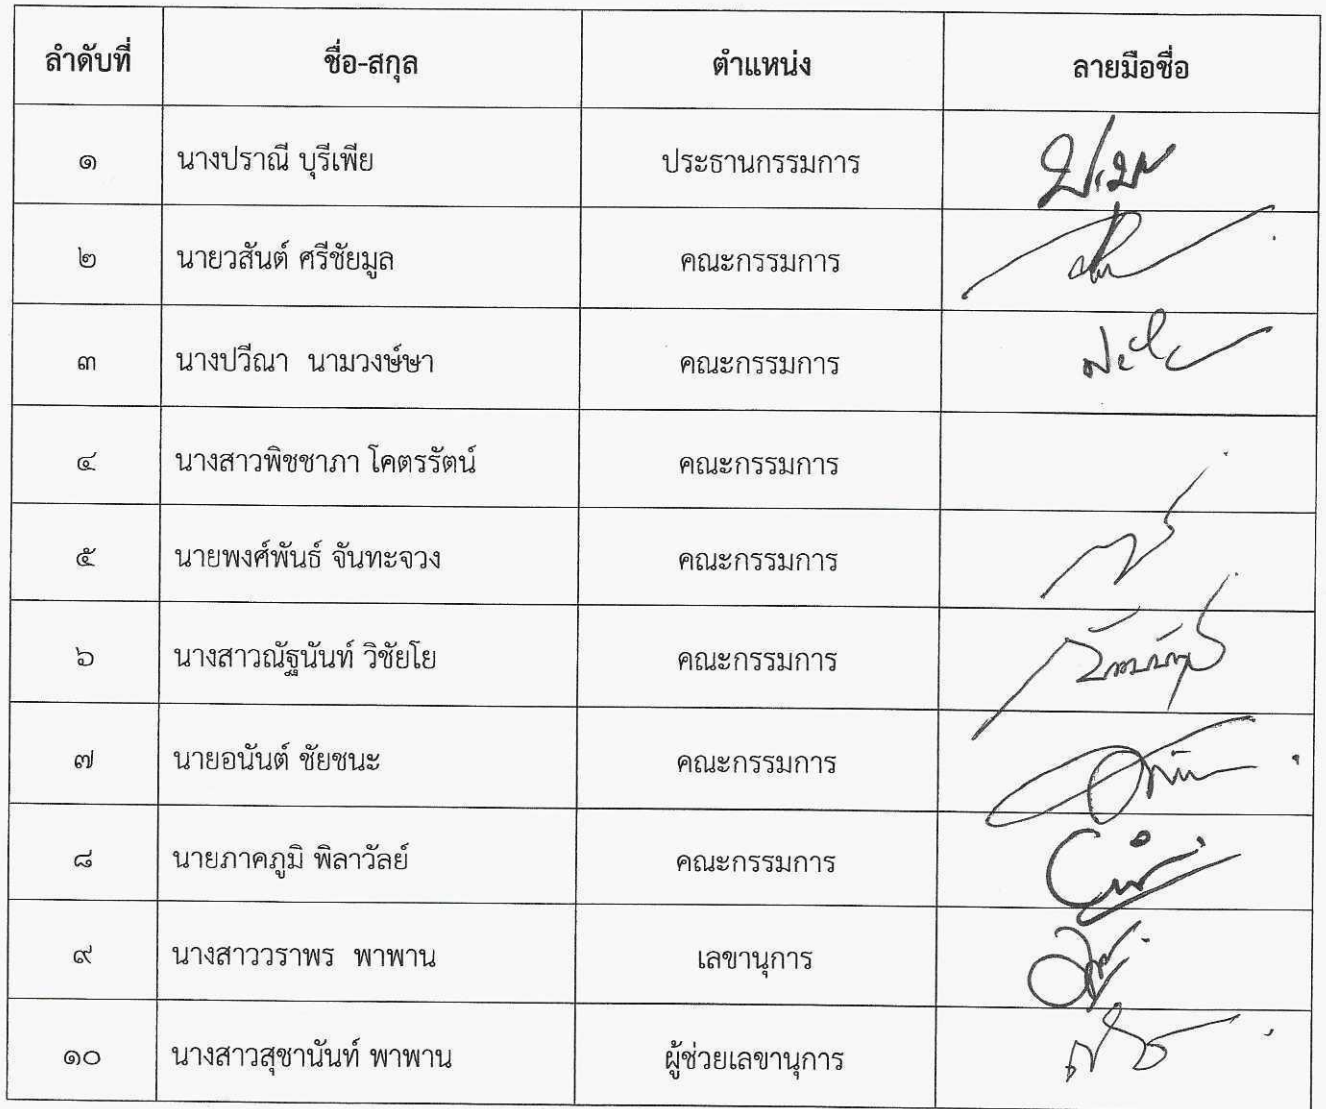 ลำดับที่ ชื่อ-สกุล ตำแหน่ง ลายมือชื่อ
๑ นางปราณี บุรีเพีย ประธานกรรมการ
๒ นายวสันต์ ศรีชัยมูล คณะกรรมการ
๓ นางปวีณา นามวงษ์ษา คณะกรรมการ
๔ นางสาวพิชชาภา โคตรรัตน์ คณะกรรมการ
๕ นายพงศ์พันธ์ จันทะจวง คณะกรรมการ
๖ นางสาวณัฐนันท์ วิชัยโย คณะกรรมการ
๗ นายอนันต์ ชัยชนะ คณะกรรมการ
๘ นายภาคภูมิ พิลาวัลย์ คณะกรรมการ
๙ นางสาววราพร พาพาน เลขานุการ
๑๐ นางสาวสุชานันท์ พาพาน ผู้ช่วยเลขานุการ